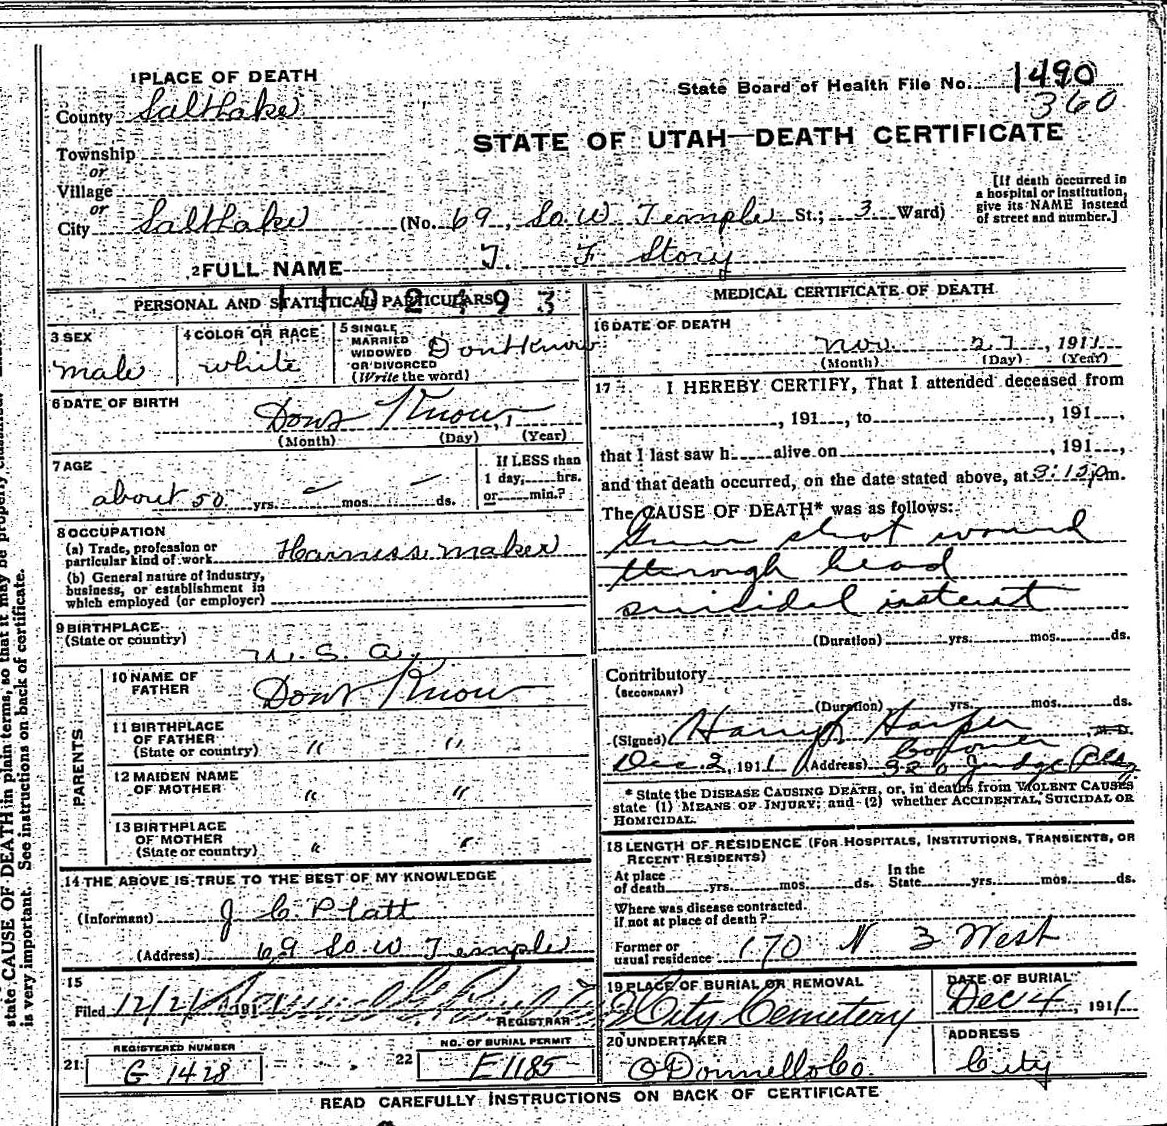 1 PLACE OF DEATH
County Salt Lake
State Board of Health File No. 1490
360
STATE OF UTAH—DEATH CERTIFICATE
Township
or
Village
or
City Salt Lake (No. 69, So. W Temple St.; 3 Ward)
[If death occurred in
a hospital or institution,
give its NAME instead
of street and number.]
2 FULL NAME F Story
PERSONAL AND STATISTICAL PARTICULARS
3 SEX
male
4 COLOR OR RACE
white
5 SINGLE
MARRIED
WIDOWED
OR DIVORCED
(Write the word)
Dont Know
6 DATE OF BIRTH
Dont Know, 1
(Month) (Day) (Year)
7 AGE
about 50 yrs. — mos. — ds.
If LESS than
1 day, hrs.
or min.?
8 OCCUPATION
(a) Trade, profession or
particular kind of work Harness maker
(b) General nature of industry,
business, or establishment in
which employed (or employer)
9 BIRTHPLACE
(State or country)
U. S. A.
PARENTS
10 NAME OF
FATHER
Dont Know
11 BIRTHPLACE
OF FATHER
(State or country) " "
12 MAIDEN NAME
OF MOTHER " "
13 BIRTHPLACE
OF MOTHER
(State or country) " "
14 THE ABOVE IS TRUE TO THE BEST OF MY KNOWLEDGE
(Informant) J C Platt
(Address) 69 So W Temple
15
Filed 12/2/ 191
REGISTRAR
21: REGISTERED NUMBER
G 1428
22 NO. OF BURIAL PERMIT
E1185
MEDICAL CERTIFICATE OF DEATH
16 DATE OF DEATH
Nov 27, 1911
(Month) (Day) (Year)
17 I HEREBY CERTIFY, That I attended deceased from
, 191 , to , 191 ,
that I last saw h alive on , 191 ,
and that death occurred, on the date stated above, at 3:15 pm.
The CAUSE OF DEATH* was as follows:
Gun shot wound
through head
suicidal intent
(Duration) yrs. mos. ds.
Contributory
(SECONDARY)
(Duration) yrs. mos. ds.
(Signed) Harry Harper M. D.
Coroner
Dec 2, 1911 (Address) 320 Judge Bldg
* State the DISEASE CAUSING DEATH, or, in deaths from VIOLENT CAUSES
state (1) MEANS OF INJURY; and (2) whether ACCIDENTAL, SUICIDAL OR
HOMICIDAL.
18 LENGTH OF RESIDENCE (FOR HOSPITALS, INSTITUTIONS, TRANSIENTS, OR
RECENT RESIDENTS)
At place
of death yrs. mos. ds.
In the
State yrs. mos. ds.
Where was disease contracted
if not at place of death?
Former or
usual residence 170 N 3 West
19 PLACE OF BURIAL OR REMOVAL
City Cemetery
DATE OF BURIAL
Dec 4, 1911
20 UNDERTAKER
O'Donnell & Co.
ADDRESS
City
READ CAREFULLY INSTRUCTIONS ON BACK OF CERTIFICATE
state CAUSE OF DEATH in plain terms, so that it may be properly
is very important. See instructions on back of certificate.